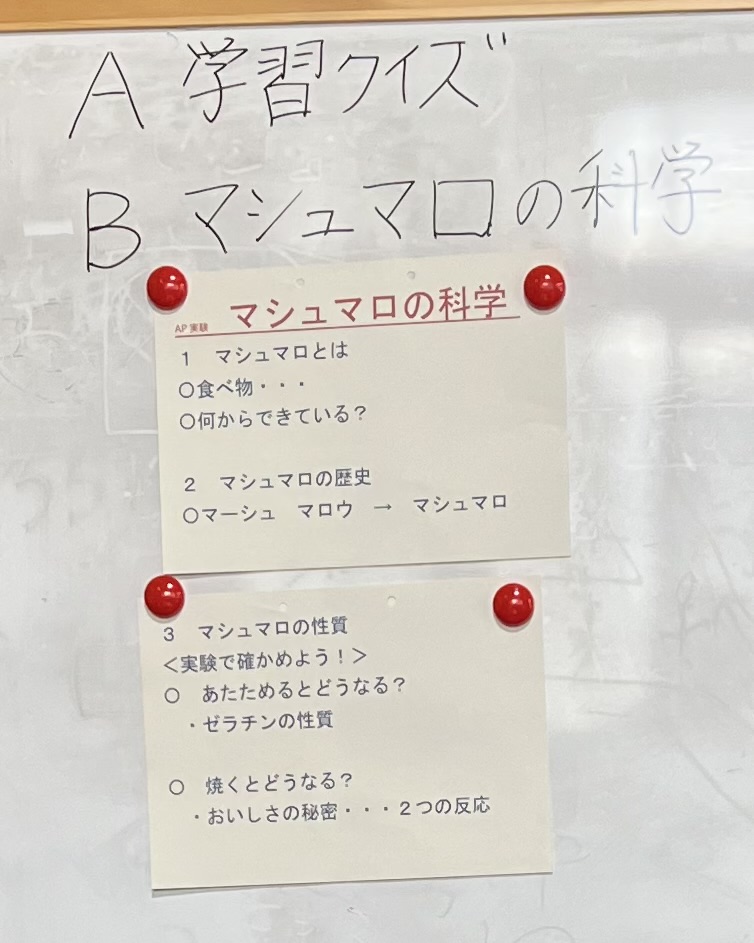 A 学習クイズ
B マシュマロの科学
AP 実験 マシュマロの科学
1 マシュマロとは
○食べ物・・・
○何からできている？
2 マシュマロの歴史
○マーシュ マロウ → マシュマロ
3 マシュマロの性質
＜実験で確かめよう！＞
○ あたためるとどうなる？
・ゼラチンの性質
○ 焼くとどうなる？
・おいしさの秘密・・・２つの反応